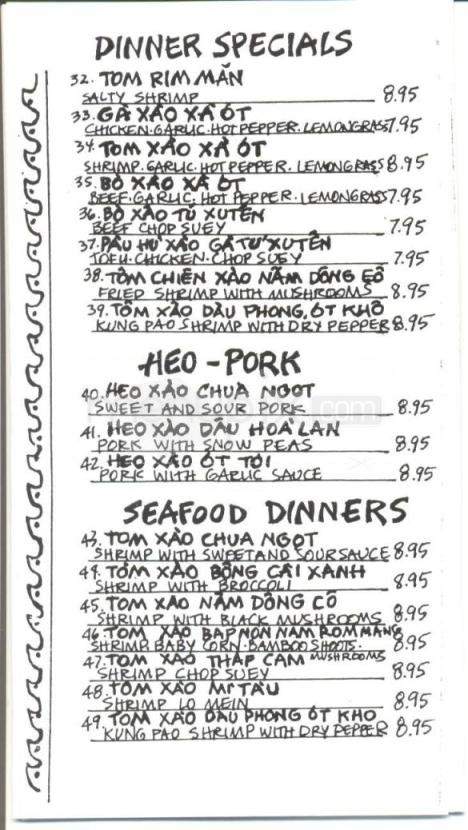 DINNER SPECIALS
32. TOM RIM MĂN
SALTY SHRIMP 8.95
33. GÀ XÀO XẢ ÓT
CHICKEN. GARLIC. HOT PEPPER. LEMONGRASS 7.95
34. TOM XÀO XẢ ÓT
SHRIMP. GARLIC. HOT PEPPER. LEMONGRASS 8.95
35. BÒ XÀO XẢ ÓT
BEEF. GARLIC. HOT PEPPER. LEMONGRASS 7.95
36. BÒ XÀO TÚ XUTÊN
BEEF CHOP SUEY 7.95
37. PÂU HƯ XÀO GÀ TƯ XUTÊN
TOFU. CHICKEN. CHOP SUEY 7.95
38. TÔM CHIÊN XÀO NĂM DÔNG CÔ
FRIED SHRIMP WITH MUSHROOMS 8.95
39. TÔM XÀO DÂU PHONG, ÓT KHÔ
KUNG PAO SHRIMP WITH DRY PEPPER 8.95
HEO - PORK
40. HEO XÀO CHUA NGOT
SWEET AND SOUR PORK 8.95
41. HEO XÀO DÂU HOÀ LAN
PORK WITH SNOW PEAS 8.95
42. HEO XÀO ÓT TOI
PORK WITH GARLIC SAUCE 8.95
SEAFOOD DINNERS
43. TOM XÀO CHUA NGOT
SHRIMP WITH SWEET AND SOUR SAUCE 8.95
44. TÔM XÀO BÔNG CẢI XANH
SHRIMP WITH BROCCOLI 8.95
45. TÔM XÀO NĂM DÔNG CÔ
SHRIMP WITH BLACK MUSHROOMS 8.95
46. TÔM XÀO BAP NON NAM ROM MANG
SHRIMP. BABY CORN. BAMBOO SHOOTS. MUSHROOMS 8.95
47. TOM XÀO THÂP CAM
SHRIMP CHOP SUEY 8.95
48. TÔM XÀO MI TÀU
SHRIMP LO MEIN 8.95
49. TÔM XÀO DÂU PHONG ÓT KHO
KUNG PAO SHRIMP WITH DRY PEPPER 8.95